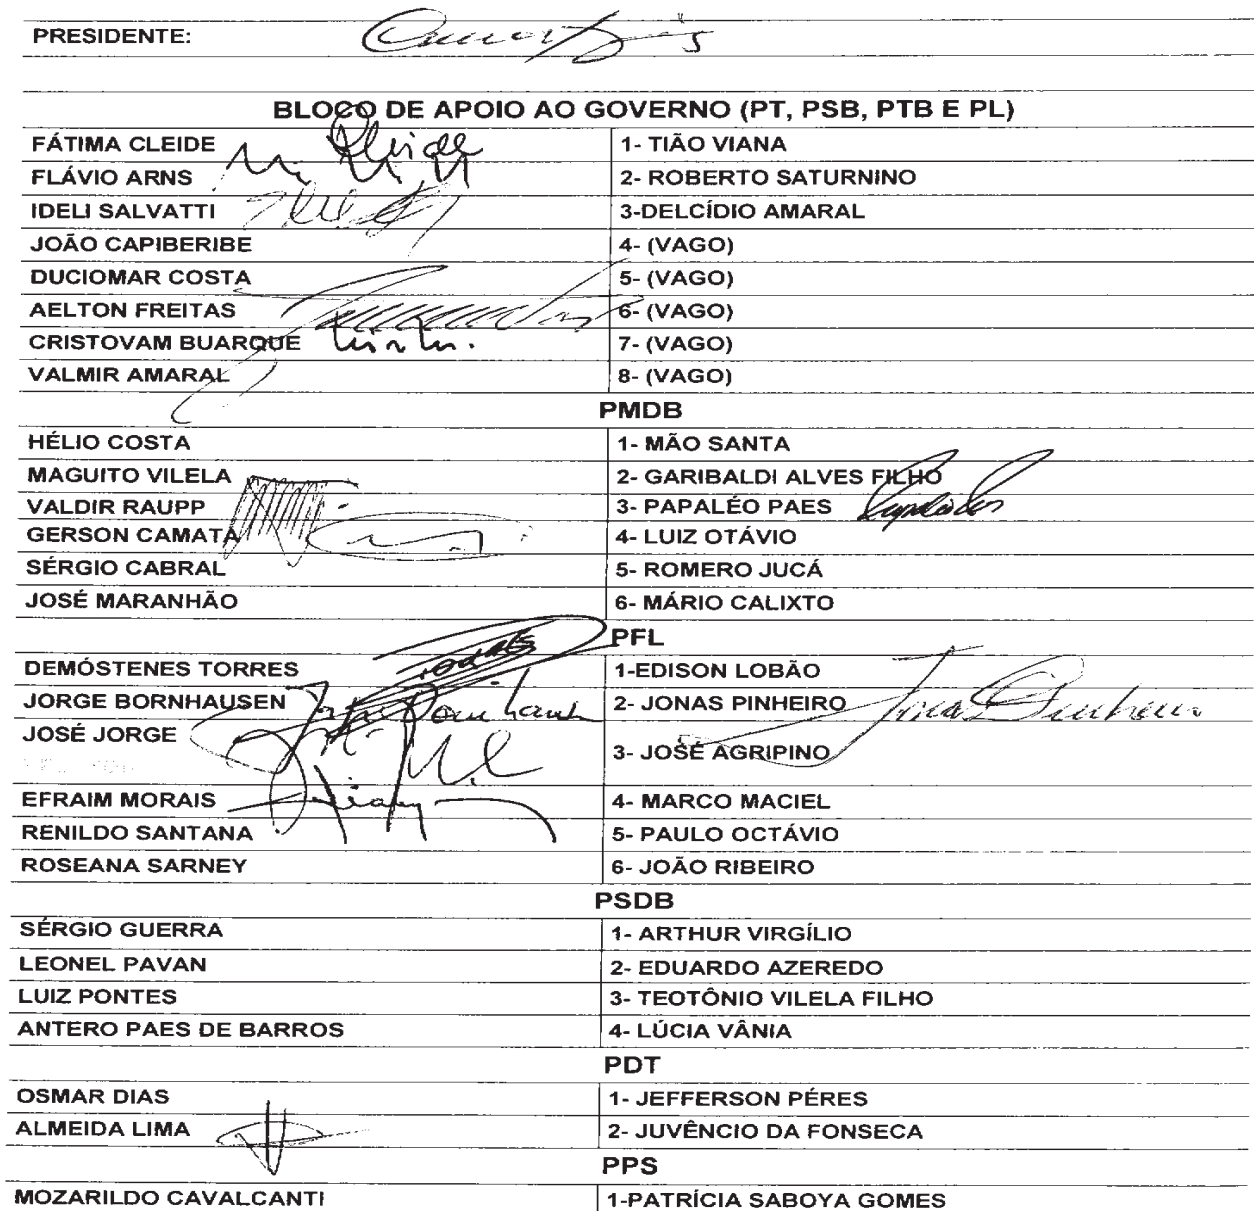 PRESIDENTE:
BLOCO DE APOIO AO GOVERNO (PT, PSB, PTB E PL)
FÁTIMA CLEIDE 1- TIÃO VIANA
FLÁVIO ARNS 2- ROBERTO SATURNINO
IDELI SALVATTI 3-DELCÍDIO AMARAL
JOÃO CAPIBERIBE 4- (VAGO)
DUCIOMAR COSTA 5- (VAGO)
AELTON FREITAS 6- (VAGO)
CRISTOVAM BUARQUE 7- (VAGO)
VALMIR AMARAL 8- (VAGO)
PMDB
HÉLIO COSTA 1- MÃO SANTA
MAGUITO VILELA 2- GARIBALDI ALVES FILHO
VALDIR RAUPP 3- PAPALÉO PAES
GERSON CAMATA 4- LUIZ OTÁVIO
SÉRGIO CABRAL 5- ROMERO JUCÁ
JOSÉ MARANHÃO 6- MÁRIO CALIXTO
PFL
DEMÓSTENES TORRES 1-EDISON LOBÃO
JORGE BORNHAUSEN 2- JONAS PINHEIRO Jonas Pinheiro
JOSÉ JORGE 3- JOSÉ AGRIPINO
EFRAIM MORAIS 4- MARCO MACIEL
RENILDO SANTANA 5- PAULO OCTÁVIO
ROSEANA SARNEY 6- JOÃO RIBEIRO
PSDB
SÉRGIO GUERRA 1- ARTHUR VIRGÍLIO
LEONEL PAVAN 2- EDUARDO AZEREDO
LUIZ PONTES 3- TEOTÔNIO VILELA FILHO
ANTERO PAES DE BARROS 4- LÚCIA VÂNIA
PDT
OSMAR DIAS 1- JEFFERSON PÉRES
ALMEIDA LIMA 2- JUVÊNCIO DA FONSECA
PPS
MOZARILDO CAVALCANTI 1-PATRÍCIA SABOYA GOMES